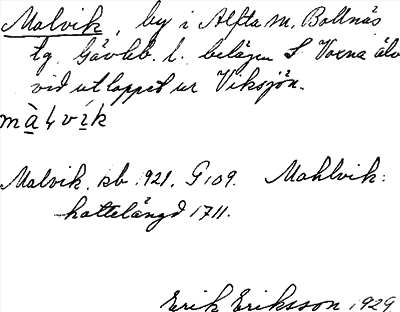 Malvik, by i Alfta m. Bollnäs
tg. Gävleb. l. belägen S Voxna älv
vid utloppet ur Viksjön.
màɫvik
Malvik. sb. 1921. G 109. Mahlvik:
kattelängd 1711.
Erik Eriksson 1929.